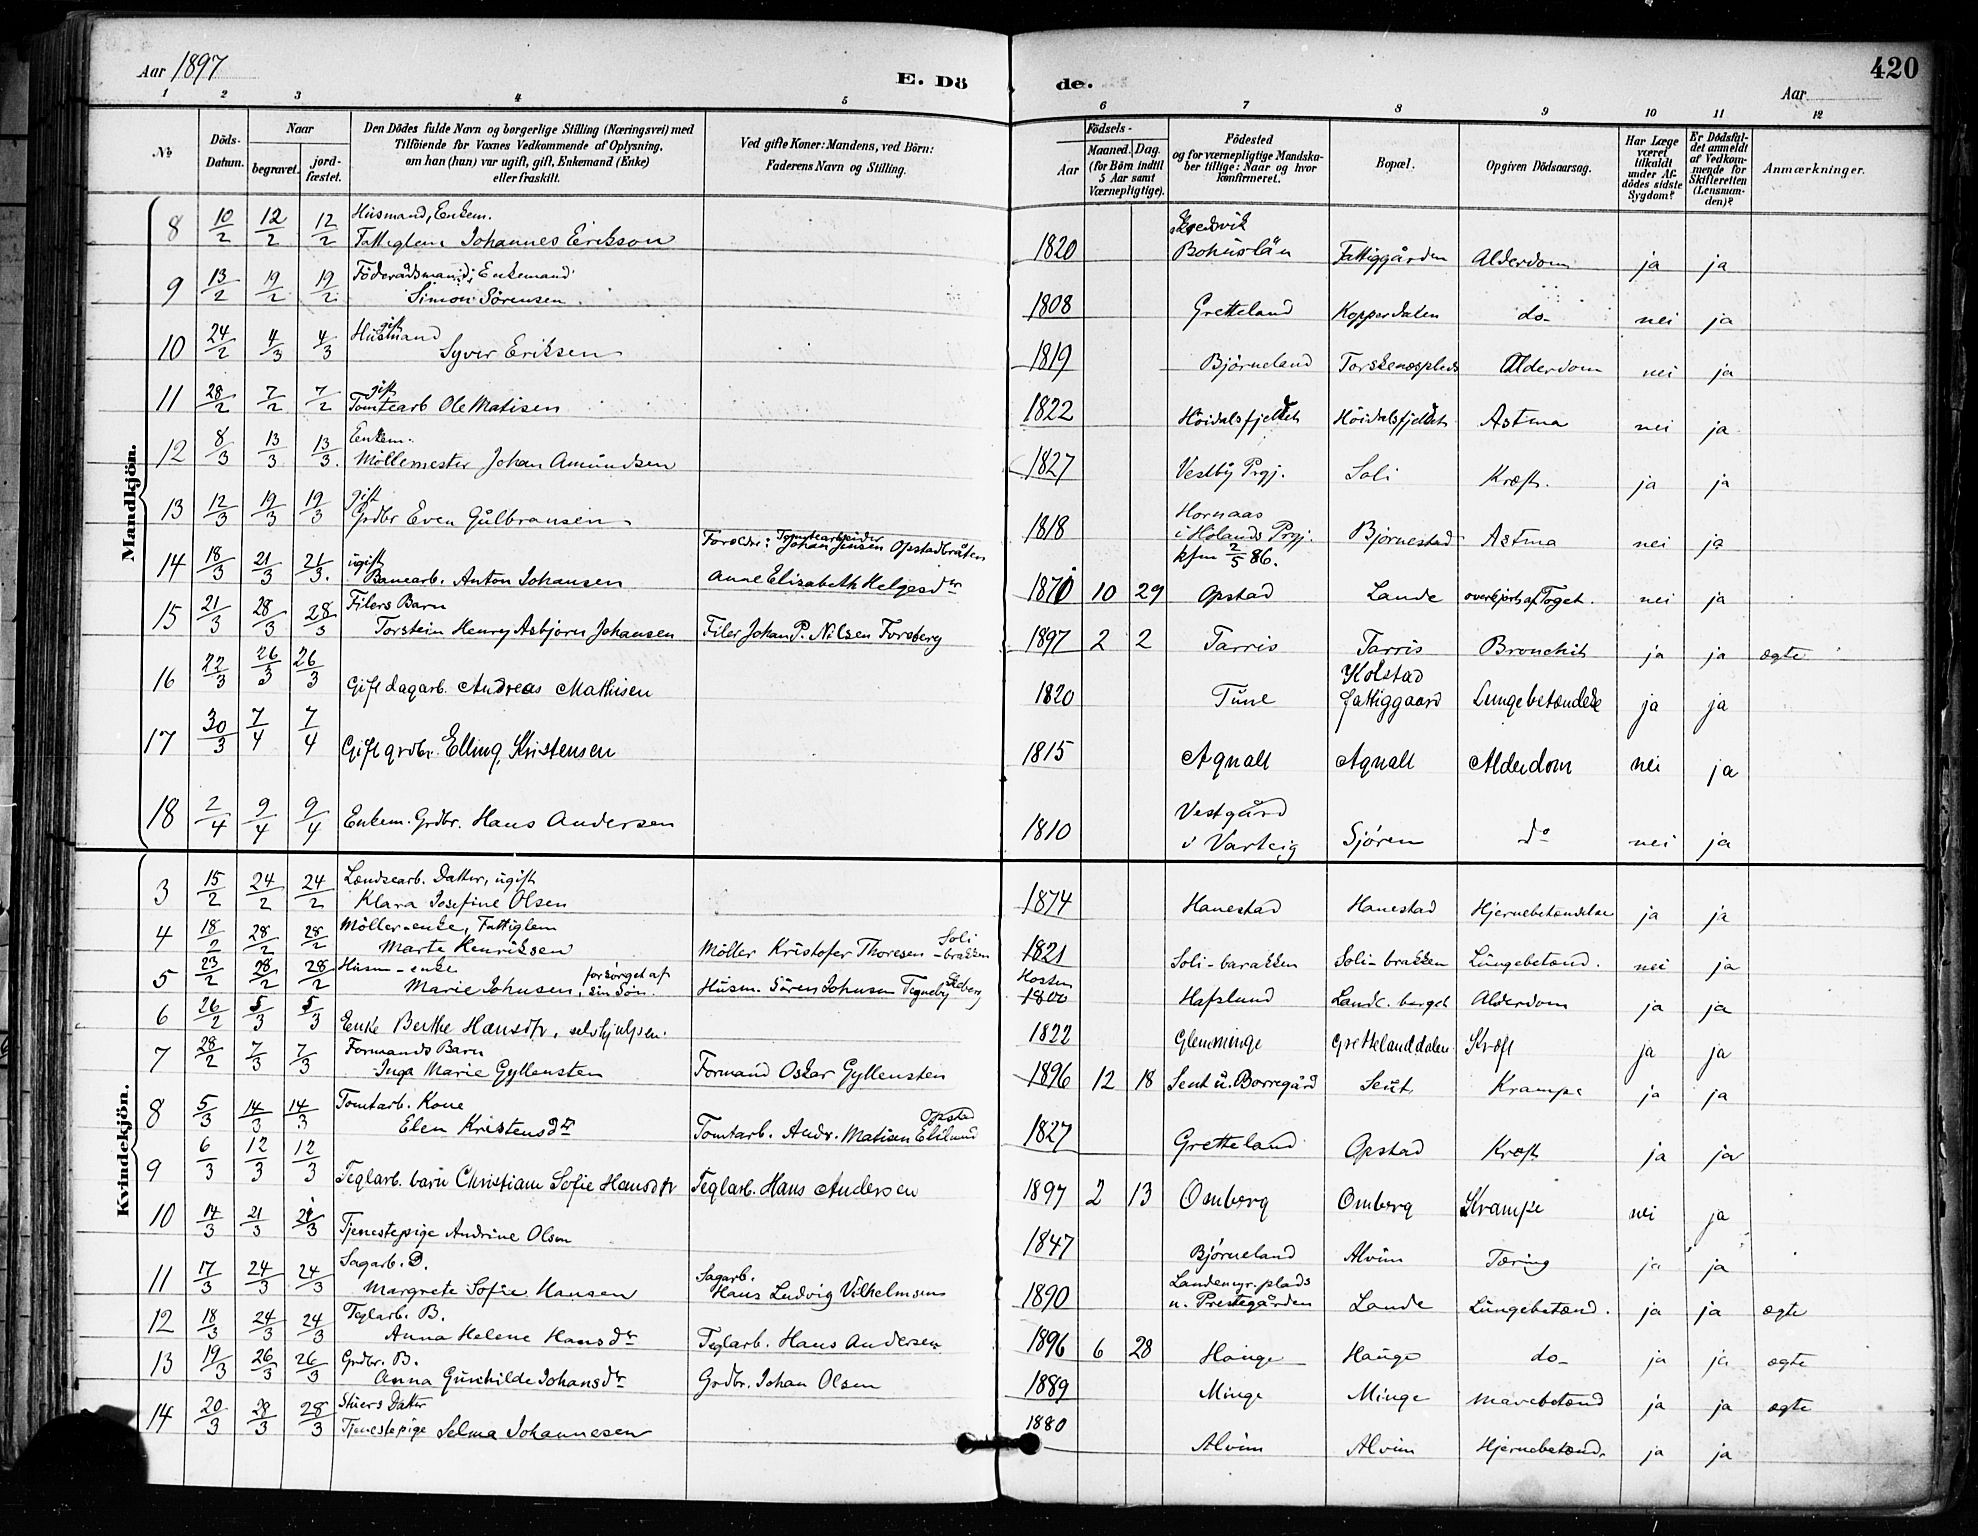 Aar 1897
E. Dö de.
420
Aar
1 2 3 4 5 6 7 8 9 10 11 12
№
Döds-Datum.
Naar
begravet.
jordfæstet.
Den Dödes fulde Navn og borgerlige Stilling (Næringsvei) med
Tilföiende for Voxnes Vedkommende af Oplysning,
om han (hun) var ugift, gift, Enkemand (Enke)
eller fraskilt.
Ved gifte Koner: Mandens, ved Börn:
Faderens Navn og Stilling.
Födsels-
Aar
Maaned. Dag.
(for Börn indtil 5 Aar samt Værnepligtige).
Födested
og for værnepligtige Mandskaber tillige: Naar og hvor konfirmeret.
Bopæl.
Opgiven Dödsaarsag.
Har Læge været tilkaldt under Afdödes sidste Sygdom?
Er Dödsfaldet anmeldt af Vedkommende for Skifteretten (Lensmanden)?
Anmærkninger.
Mandkjön.
8 10/2 12/2 12/2 Husmand, Enkem. Fattiglem Johannes Erikson 1820 Bohuslän Fattiggården Alderdom ja ja
9 13/2 19/2 19/2 Föderådsmand, Enkemand Simon Sörensen 1808 Gretteland Kopperdalen do- nei ja
10 24/2 4/3 4/3 gift Husmand Syver Eriksen 1819 Bjørneland Torskenæsplads Alderdom nei ja
11 28/2 7/2 7/2 gift Tomtearb Ole Matisen 1822 Höidalsfjeldet Höidalsfjeldet Astma nei ja
12 8/3 13/3 13/3. Enkem. Möllemester Johan Amundsen 1827 Vestby Prgj. Soli Kræft. ja ja
13 12/3 19/3 19/3 gift Grdbr Even Gulbransen 1818 Hornaas i Hölands Prgj. Bjørnestad Astma nei ja
14 18/3 21/3 21/3. ugift Banearb. Anton Johansen Forældre: Tomtearbeider Johan Jensen Opstadbråten Anne Elisabeth Helgesdtr 1870 10 29 kfm 2/5 86. Opstad Lande overkjørt af Toget. nei ja
15 21/3 28/3 28/3 Filers Barn Torstein Henry Asbjørn Johansen Filer Johan P. Nilsen Forsberg 1897 2 2 Tarris Tarris Bronchit ja ja ægte
16 22/3 26/3 26/3 Gift dagarb. Andreas Mathisen 1820 Tune Kolstad fattiggaard Lungebetændelse ja ja
17 30/3 7/4 7/4 Gift grdbr. Elling Kristensen 1815 Agnalt Agnalt Alderdom nei ja
18 2/4 9/4 9/4 Enkem. Grdbr. Hans Andersen 1810 Vestgård i Varteig Sjøren do nei ja
Kvindekjön.
3 15/2 24/2 24/2 Lændsearb. Datter, ugift Klara Josefine Olsen 1874 Hanestad Hanestad Hjernebetændelse ja ja
4 18/2 28/2 28/2 Möller-enke, Fattiglem Marte Henriksen Möller Kristofer Thoresen Soli-brakken 1821 Soli-barakken Soli-brakken Lungebetænd. nei ja
5 23/2 28/2 28/2 Husm-enke Marie Johnsen, forsørget af sin Søn. Husm. Sören Johnsen Tegneby 1800 Hafslund Alderdom ja ja
6 26/2 5/3 5/3 Enke Berthe Hansdtr, selvhjulpen. 1822 Glemminge Grettelanddalen Kræft ja ja
7 28/2 7/3 7/3 Formands Barn Inga Marie Gyllensten Formand Oskar Gyllensten 1896 12 18 Seut u. Borregård Seut Krampe ja ja
8 5/3 14/3 14/3 Tomtarb. Kone Elen Kristensdtr Tomtarb. Andr. Matisen Opstad 1827 Gretteland Opstad Kræft ja ja
9 6/3 12/3 12/3 Teglarb. barn Christiane Sofie Hansdtr Teglarb. Hans Andersen 1897 2 13 Omberg Omberg Krampe nei ja
10 14/3 21/3 21/3 Tjenestepige Andrine Olsen 1847 Bjørneland Alvim Tæring ja ja
11 17/3 24/3 24/3 Sagarb. D. Margrete Sofie Hansen Sagarb. Hans Ludvig Vilhelmsen 1890 Landemyr. plads u. Prestegården Lande Lungebetænd. ja ja ægte
12 18/3 24/3 24/3 Teglarb. B. Anna Helene Hansdtr Teglarb. Hans Andersen 1896 6 28 Hauge Hauge do- ja ja ægte
13 19/3 26/3 26/3 Grdbr. B. Anna Gunhilde Johansdtr Grdbr. Johan Olsen 1889 Minge Minge Mavebetænd ja ja ægte
14 20/3 28/3 28/3 Datter Tjenestepige Selma Johannesen 1880 Alvim Alvim Hjernebetænd. ja ja